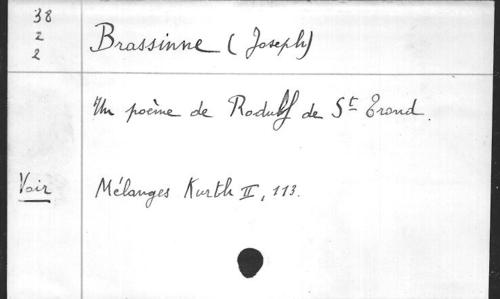 38
2
2
Brassinne (Joseph)
Un poème de Rodulf de St Trond.
Voir
Mélanges Kurth II, 113.